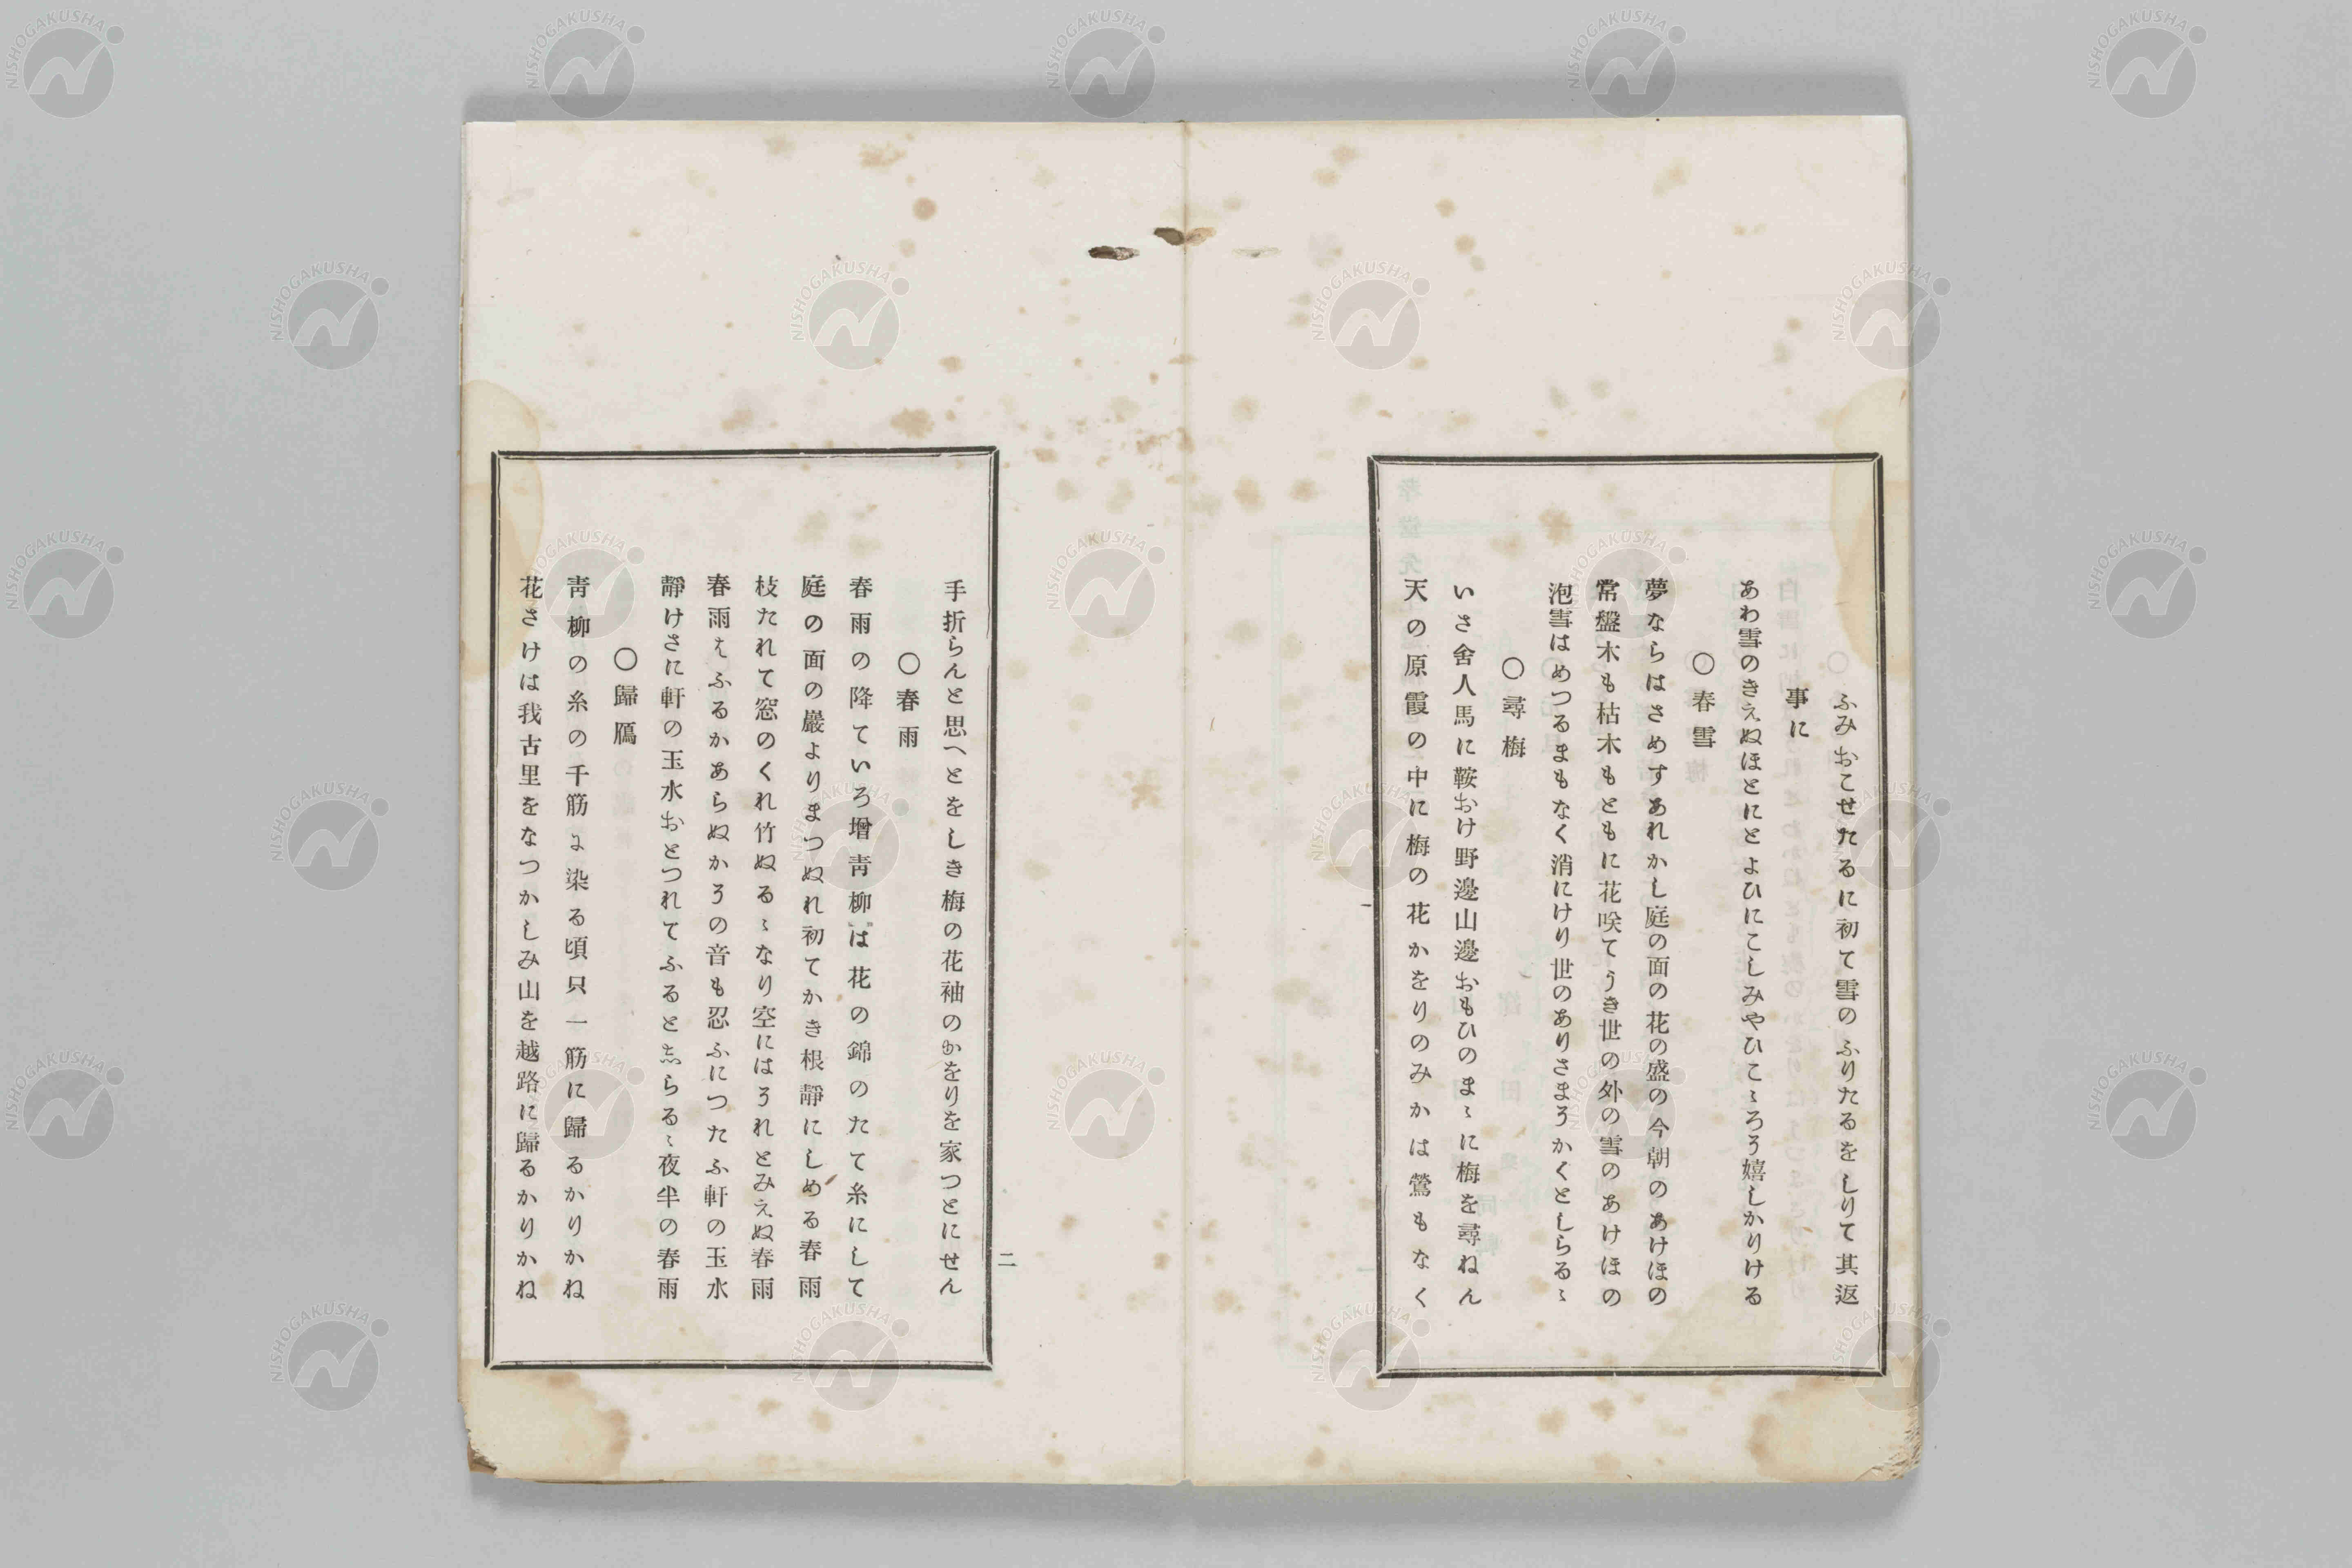 ふみおこせたるに初て雪のふりたるをしりて其返
事に
あわ雪のきえぬほとにとよひにこしみやひこゝろう嬉しかりける
〇春雪
夢ならはさめすあれかし庭の面の花の盛の今朝のあけほの
常盤木も枯木もともに花咲てうき世の外の雪のあけほの
泡雪はめつるまもなく消にけり世のありさまうかくとしらるゝ
〇尋梅
いさ舍人馬に鞍おけ野邊山邊おもひのまゝに梅を尋ねん
天の原霞の中に梅の花かをりのみかは鶯もなく
一
手折らんと思へとをしき梅の花袖のかをりを家つとにせん
〇春雨
春雨の降ていろ增靑柳は花の錦のたて糸にして
庭の面の巖よりまつぬれ初てかき根靜にしめる春雨
枝たれて窓のくれ竹ぬるゝなり空にはうれとみえぬ春雨
春雨はふるかあらぬかうの音も忍ふにつたふ軒の玉水
靜けさに軒の玉水おとつれてふると志らるゝ夜半の春雨
〇歸鴈
靑柳の糸の千筋に染る頃只一筋に歸るかりかね
花さけは我古里をなつかしみ山を越路に歸るかりかね
二
NISHOGAKUSHA